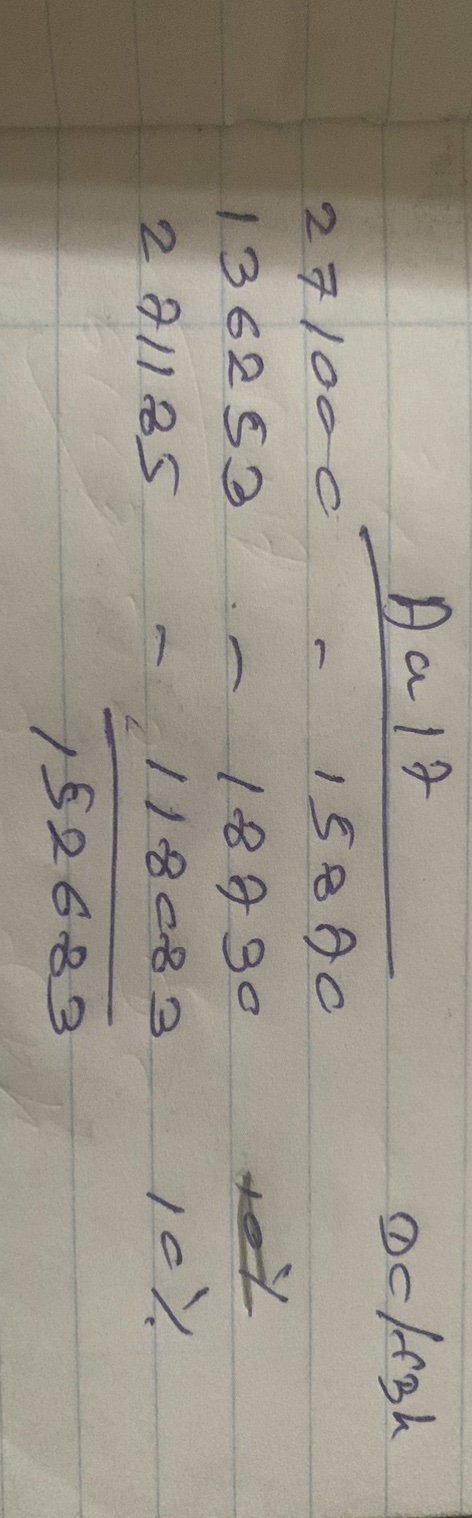 Aa17
271000 - 15870
136253 - 18730 10%
271125 - 118083 10%
152683